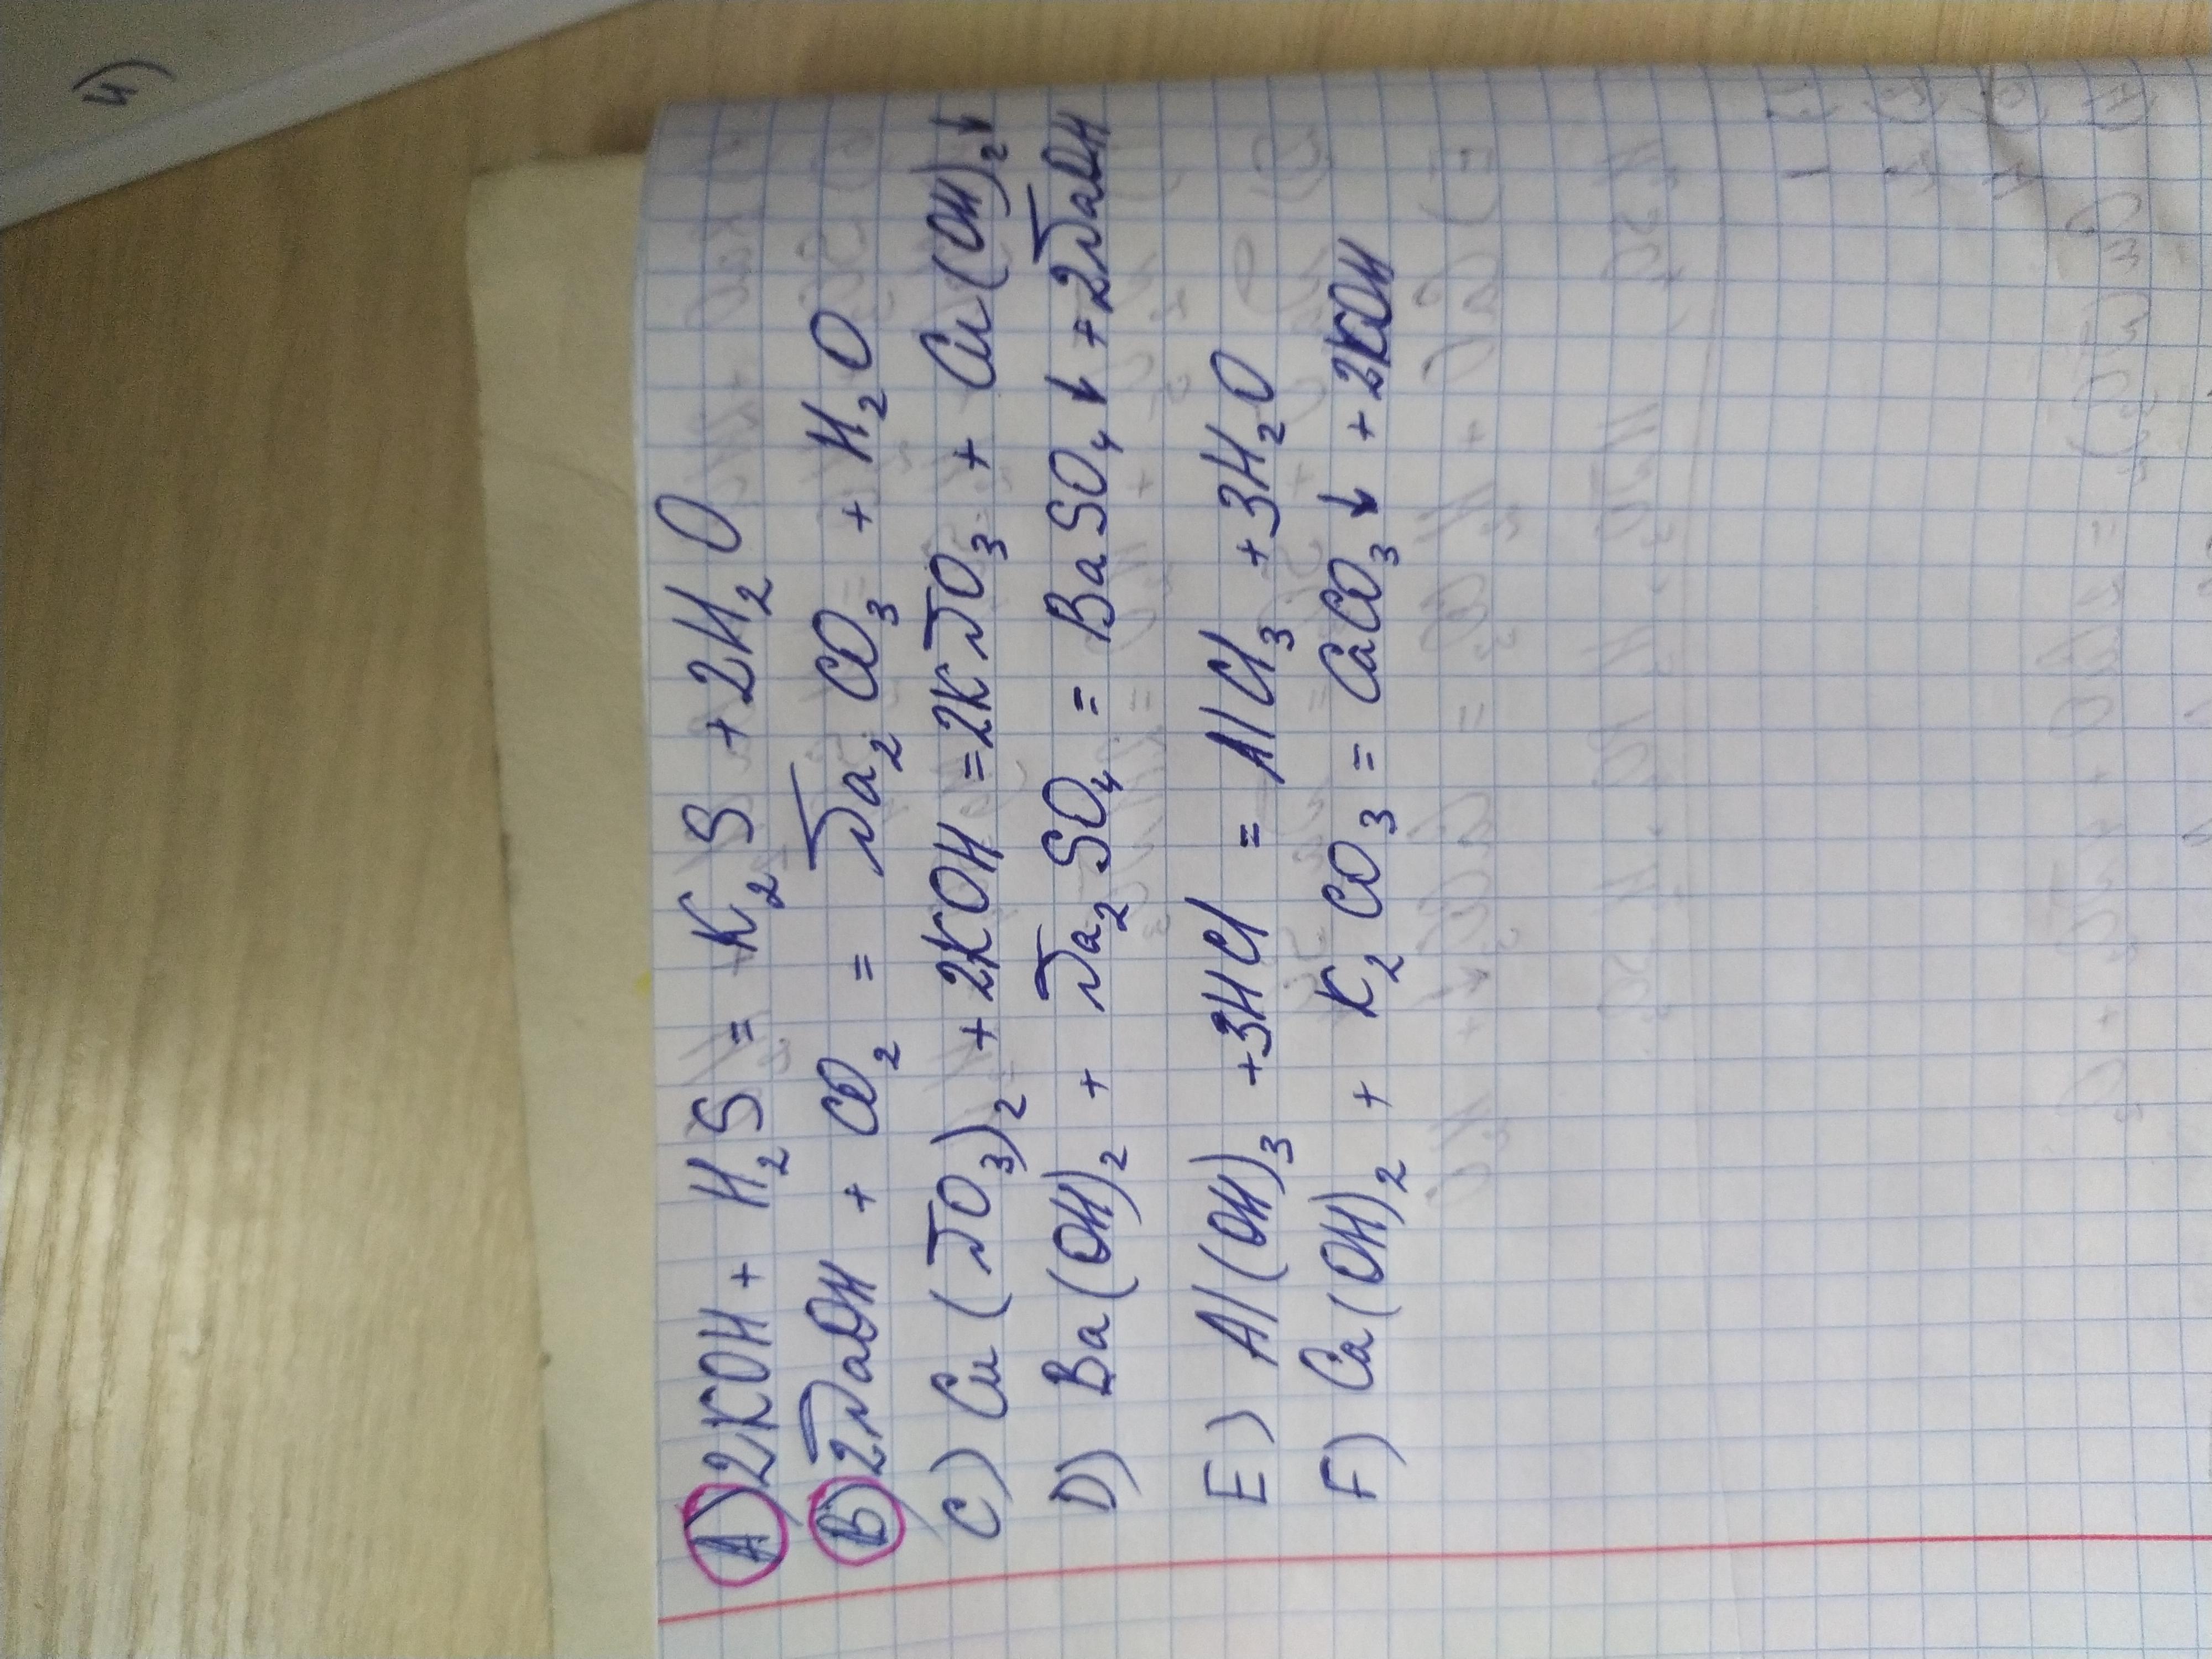 4)
A) 2KOH + H₂S = K₂S + 2H₂O
B) 2NaOH + CO₂ = Na₂CO₃ + H₂O
C) Cu(NO₃)₂ + 2KOH = 2KNO₃ + Cu(OH)₂↓
D) Ba(OH)₂ + Na₂SO₄ = BaSO₄↓ + 2NaOH
E) Al(OH)₃ + 3HCl = AlCl₃ + 3H₂O
F) Ca(OH)₂ + K₂CO₃ = CaCO₃↓ + 2KOH